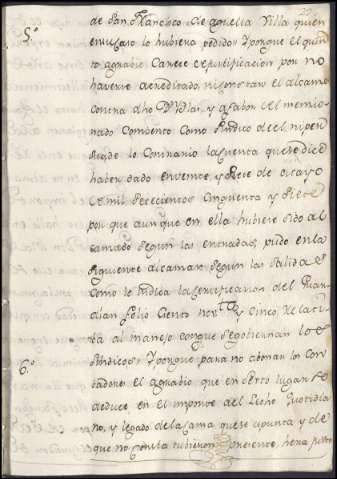 de San Francisco de aquella Villa quien
en su caso lo hubiera pedido: Y porque el quin
5.º
to agravio Carece de justificacion por no
haverse acreditado, ni constar el alcance
contra dho Dn Diaz, y a fabor del memio
nado Combento Como Sindico de el, ni pen
de lo Contrario la Cuenta que se dice
haber dado en veinte, y siete de
de mil setecientos Cinquenta y siete
por que aunque en ella hubiere sido al
canzado segun las entradas, pudo en la
siguiente alcanzar segun las salidas
Como lo indica la Certificacion del Guar
dian folio Ciento nobta y Cinco de la
al manejo con que se gobiernan los
Sindicos: Y porque para no abonar los Con
6.º
tadores el agravio que en sexto lugar se
deduce en el importe del Lecho quotidia
no, y legado de la Cama que se apunta y de
que no Consta tubieron presente, hera